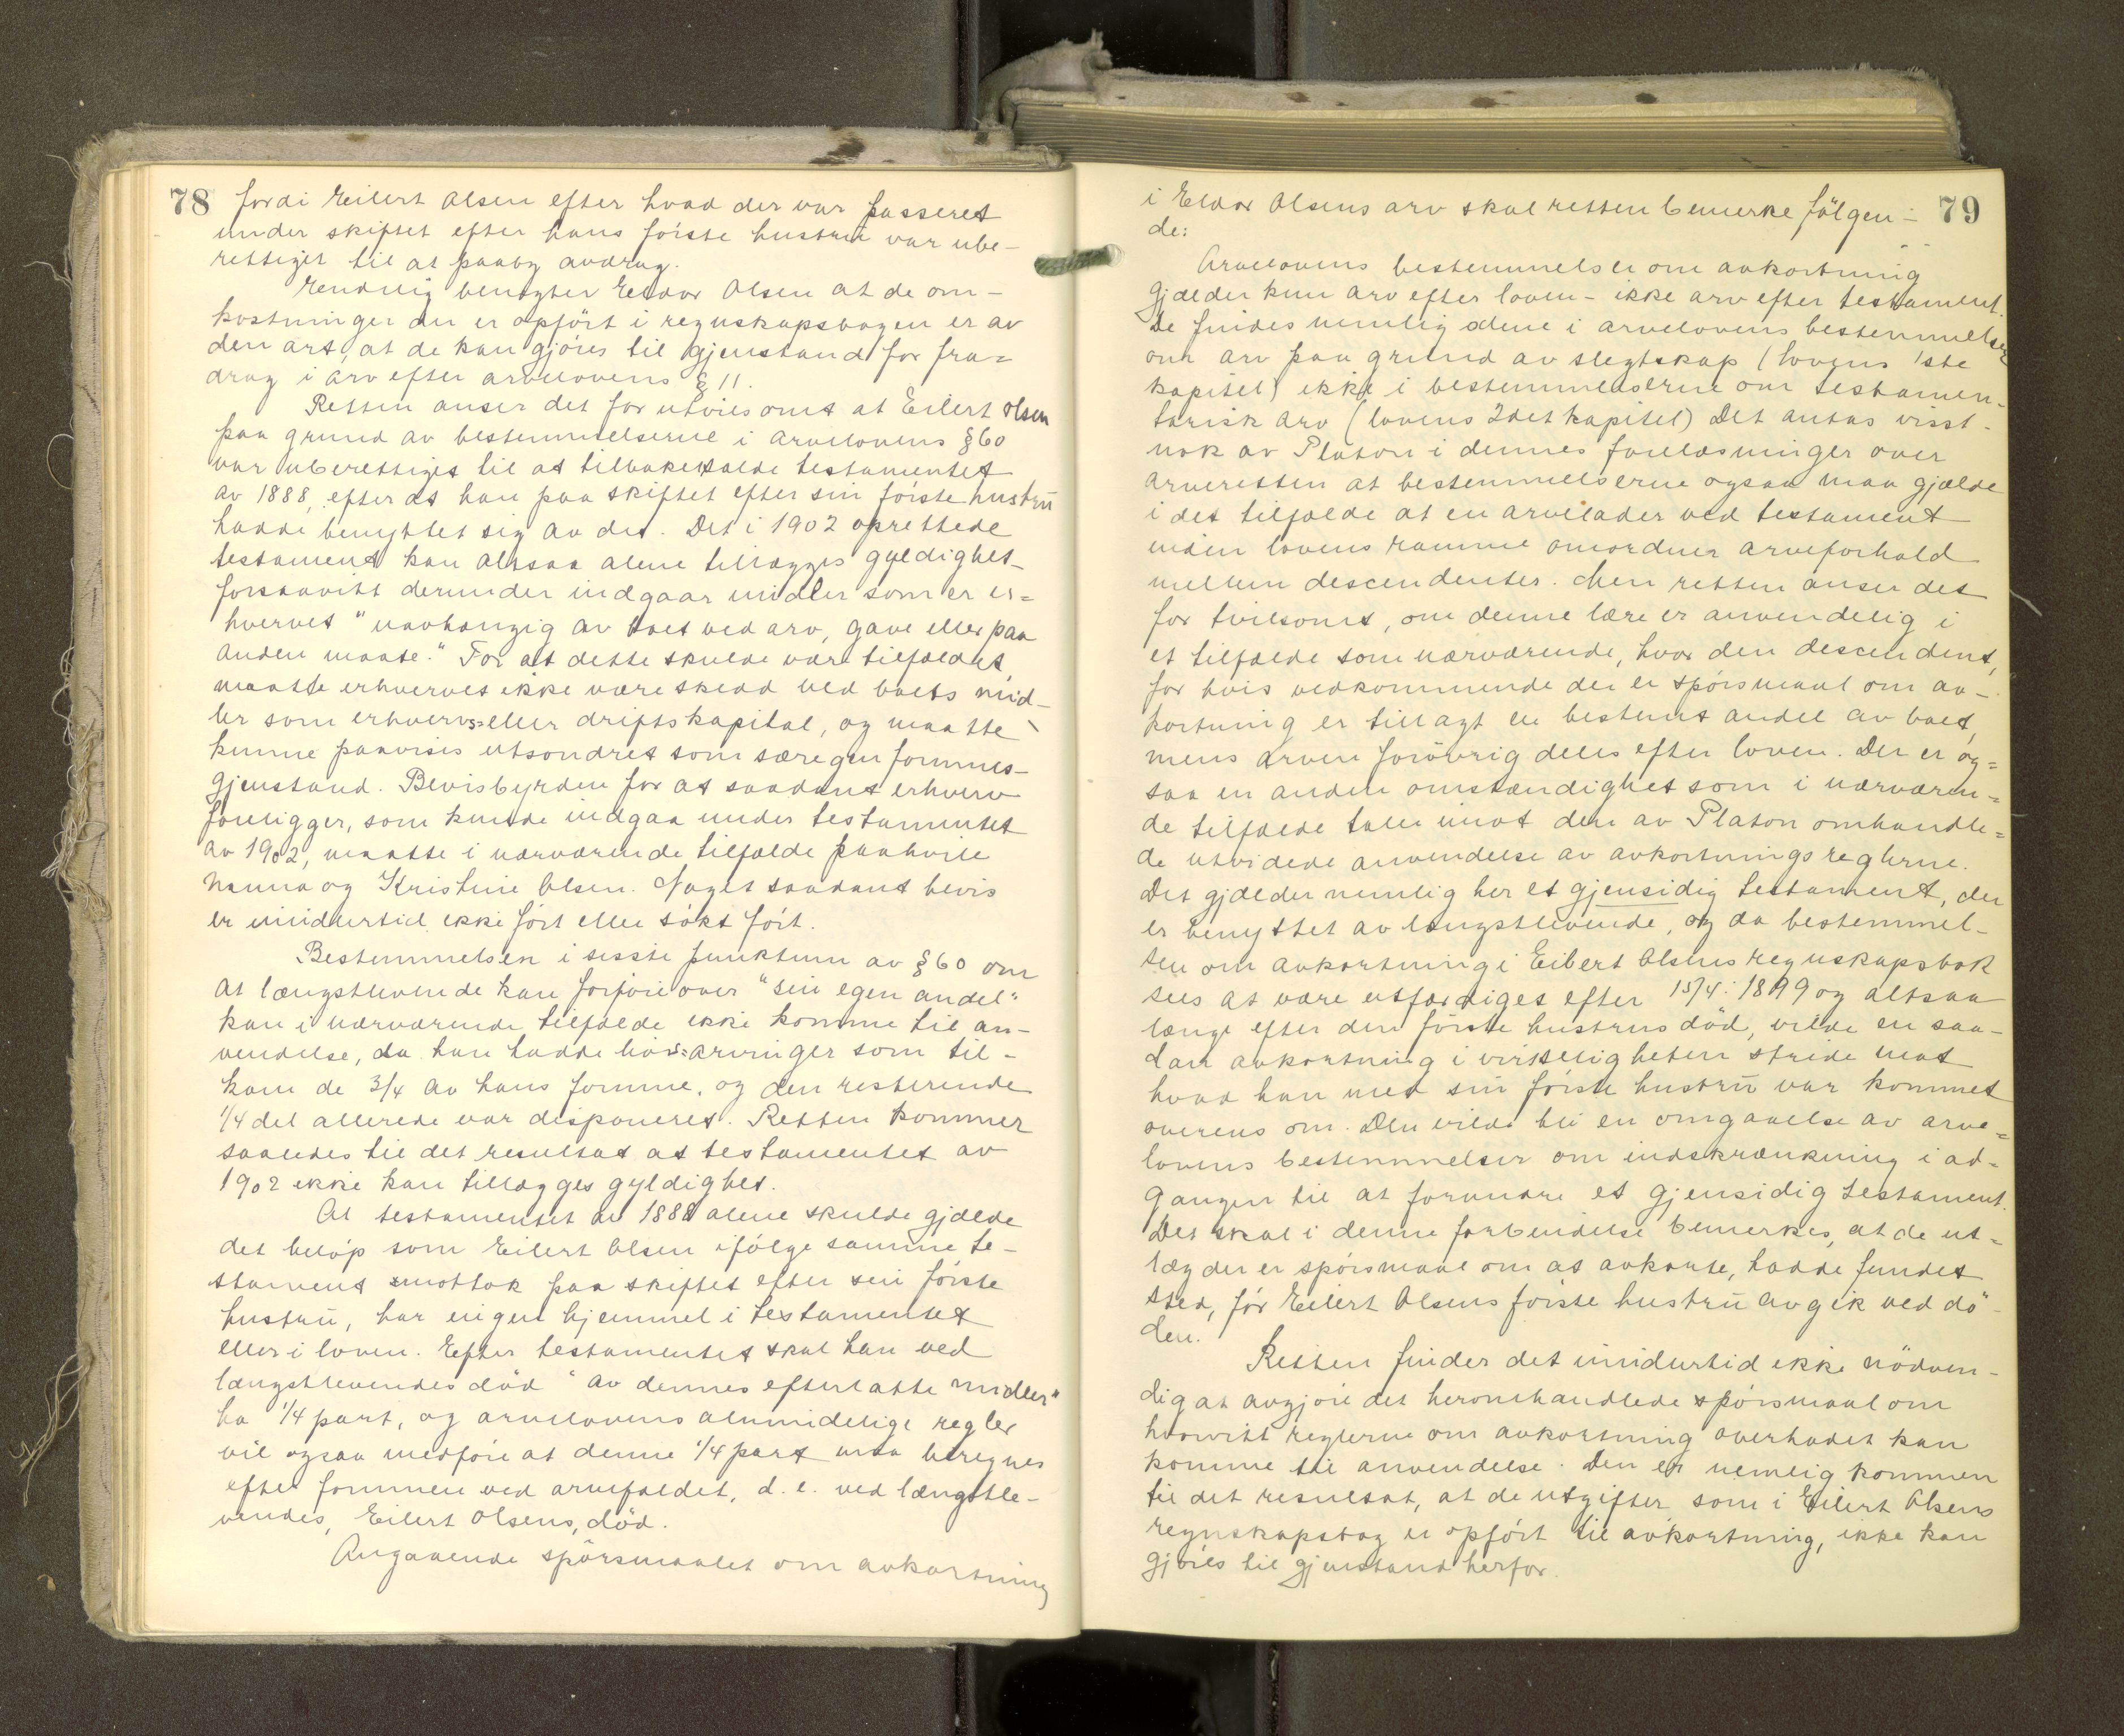 78
fordi Eilert Olsen efter hvad der var passeret
under skiftet efter hans første hustru var ube-
rettiget til at paaby avdrag.
Endelig benegter Eldor Olsen at de om-
kostninger der er opført i regnskapsbogen er av
den art, at de kan gjøres til gjenstand for fra=
drag i arv efter arvelovens § 11.
Retten anser det for utvilsomt at Eilert Olsen
paa grund av bestemmelserne i arvelovens § 60
var uberettiget til at tilbakekalde testamentet
av 1888, efter at han paa skiftet efter sin første hustru
hadde benyttet sig av det. Det i 1902 oprettede
testament kan altsaa alene tillægges gyldighet
forsaavitt derunder indgaar midler som er er=
hvervet "uavhængig av boet ved arv, gave eller paa
anden maate." For at dette skulde være tilfældet,
maatte erhvervet ikke være skedd ved boets mid-
ler som erhvervs= eller driftskapital, og maatte
kunne paavises utsondret som særegen formues-
gjenstand. Bevisbyrden for at saadant erhverv
foreligger, som kunde indgaa under testamentet
av 1902, maatte i nærværende tilfælde paahvile
Nanna og Kristine Olsen. Noget saadant bevis
er imidlertid ikke ført eller søkt ført.
Bestemmelsen i siste punktum av § 60 om
at længstlevende kan forføie over "sin egen andel"
kan i nærværende tilfælde ikke komme til an-
vendelse, da han hadde livs=arvinger som til-
kom de 3/4 av hans formue, og den resterende
1/4 del allerede var disponeret. Retten kommer
saaledes til det resultat at testamentet av
1902 ikke kan tillægges gyldighet.
At testamentet av 1888 alene skulde gjælde
det beløp som Eilert Olsen ifølge samme te-
stament mottok paa skiftet efter sin første
hustru, har ingen hjemmel i testamentet
eller i loven. Efter testamentet skal han ved
længstlevendes død "av dennes efterlatte midler"
ha 1/4 part, og arvelovens almindelige regler
vil ogsaa medføre at denne 1/4 part maa beregnes
efter formuen ved arvefaldet, d. e. ved længstle-
vendes, Eilert Olsens, død.
Angaaende spørsmaalet om avkortning
79
i Eldor Olsens arv skal retten bemerke følgen-
de:
Arvelovens bestemmelser om avkortning
gjælder kun arv efter loven - ikke arv efter testament.
De findes nemlig alene i arvelovens bestemmelser
om arv paa grund av slegtskap (lovens 1ste
kapitel) ikke i bestemmelserne om testamen-
tarisk arv (lovens 2det kapitel) Det antas visst-
nok av Platou i dennes forelæsninger over
arveretten at bestemmelserne ogsaa maa gjælde
i det tilfælde at en arvelader ved testament
inden lovens ramme omordner arveforhold
mellem descendenter. Men retten anser det
for tvilsomt, om denne lære er anvendelig i
et tilfælde som nærværende, hvor den descendent,
for hvis vedkommende der er spørsmaal om av-
kortning er tillagt en bestemt andel av boet,
mens arven forøvrig deles efter loven. Der er og=
saa en anden omstændighet som i nærværen=
de tilfælde taler imot den av Platou omhandle=
de utvidede anvendelse av avkortningsreglerne.
Det gjælder nemlig her et gjensidig testament, der
er benyttet av længstlevende, og da bestemmel-
sen om avkortning i Eilert Olsens regnskapsbok
sees at være utfærdiget efter 15/4. 1899 og altsaa
længe efter den første hustrus død, vilde en saa-
dan avkortning i virkeligheten stride mot
hvad han med sin første hustru var kommet
overens om. Den vilde bli en omgaaelse av arve=
lovens bestemmelser om indskrænkning i ad-
gangen til at forandre et gjensidig testament.
Det skal i denne forbindelse bemerkes, at de ut=
læg der er spørsmaal om at avkorte, hadde fundet
sted, før Eilert Olsens første hustru avgik ved dø-
den.
Retten finder det imidlertid ikke nødven-
dig at avgjøre det heromhandlede spørsmaal om
hvorvitt reglerne om avkortning overhodet kan
komme til anvendelse. Den er nemlig kommen
til det resultat, at de utgifter som i Eilert Olsens
regnskapsbog er opført til avkortning, ikke kan
gjøres til gjenstand herfor.